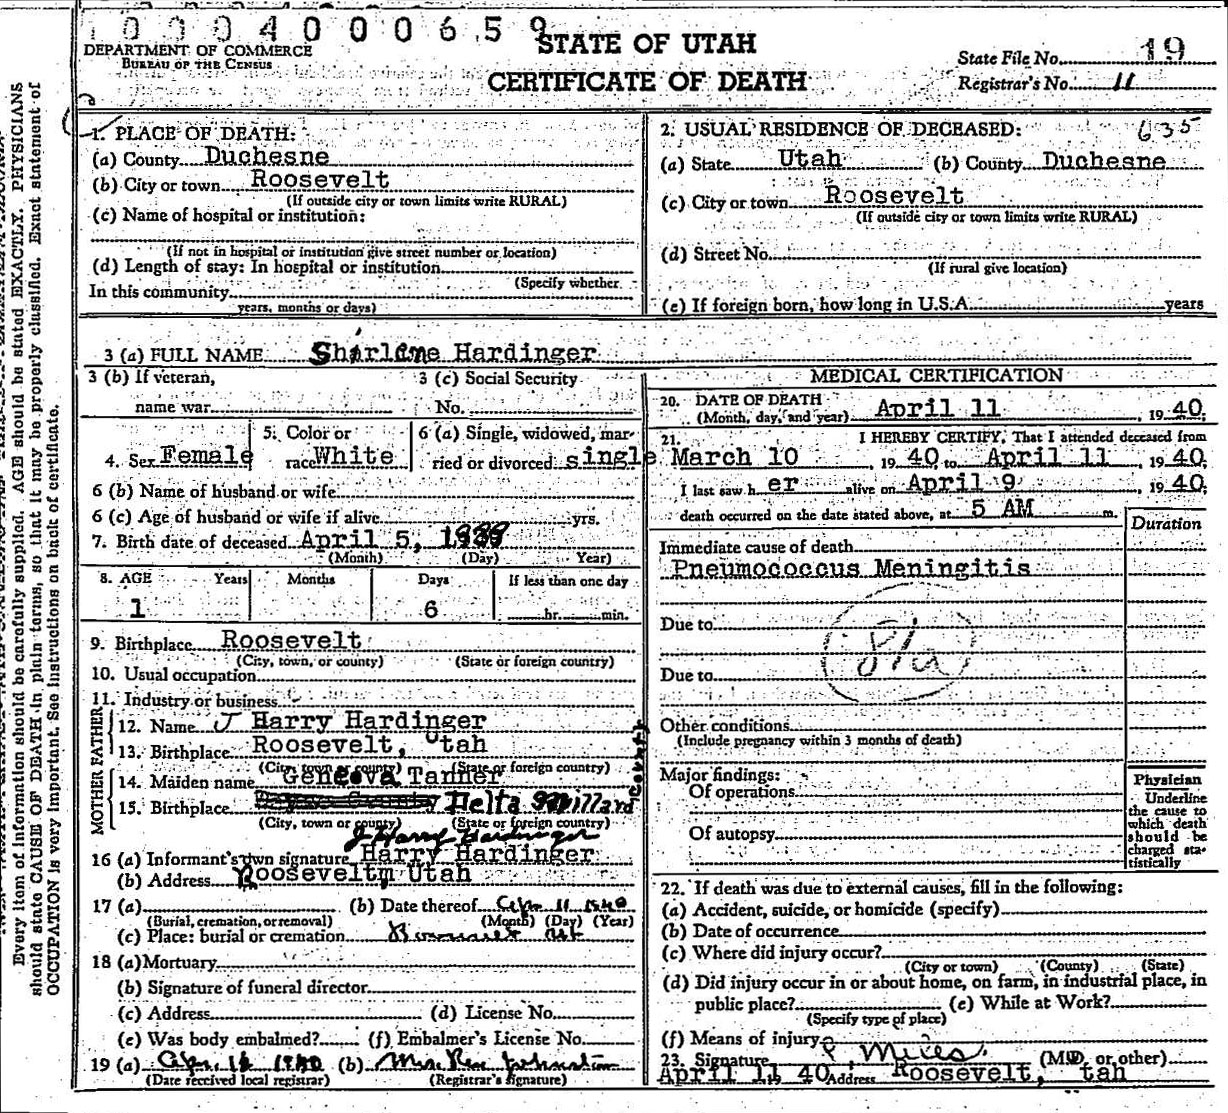 0004000659
STATE OF UTAH
CERTIFICATE OF DEATH
DEPARTMENT OF COMMERCE
BUREAU OF THE CENSUS
State File No. 19
Registrar's No. 11
Every item of information should be carefully supplied. AGE should be stated EXACTLY. PHYSICIANS
should state CAUSE OF DEATH in plain terms, so that it may be properly classified. Exact statement of
OCCUPATION is very important. See instructions on back of certificate.
1. PLACE OF DEATH:
(a) County Duchesne
(b) City or town Roosevelt
(If outside city or town limits write RURAL)
(c) Name of hospital or institution:
(If not in hospital or institution give street number or location)
(d) Length of stay: In hospital or institution
(Specify whether
In this community
years, months or days)
2. USUAL RESIDENCE OF DECEASED: 635
(a) State Utah (b) County Duchesne
(c) City or town Roosevelt
(If outside city or town limits write RURAL)
(d) Street No.
(If rural give location)
(e) If foreign born, how long in U.S.A. years
3 (a) FULL NAME Sharlene Hardinger
3 (b) If veteran,
name war
3 (c) Social Security
No.
4. Sex Female
5. Color or
race White
6 (a) Single, widowed, mar-
ried or divorced single
6 (b) Name of husband or wife
6 (c) Age of husband or wife if alive yrs.
7. Birth date of deceased April 5, 1939
(Month) (Day) Year)
8. AGE Years Months Days If less than one day
1 6 hr. min.
9. Birthplace Roosevelt
(City, town, or county) (State or foreign country)
10. Usual occupation
11. Industry or business
FATHER
12. Name J Harry Hardinger
13. Birthplace Roosevelt, Utah
(City, town or county) (State or foreign country)
MOTHER
14. Maiden name Geneova Tanner
15. Birthplace Delta Millard County
(City, town or county) (State or foreign country)
J Harry Hardinger
16 (a) Informant's own signature Harry Hardinger
(b) Address Rooseveltm Utah
17 (a) (b) Date thereof Apr 11 1940
(Burial, cremation, or removal) (Month) (Day) (Year)
(c) Place: burial or cremation
18 (a) Mortuary
(b) Signature of funeral director
(c) Address (d) License No.
(e) Was body embalmed? (f) Embalmer's License No.
19 (a) Apr. 1940 (b) Mrs. Rex Johnston
(Date received local registrar) (Registrar's signature)
MEDICAL CERTIFICATION
20. DATE OF DEATH
(Month, day, and year) April 11, 1940.
21. I HEREBY CERTIFY, That I attended deceased from
March 10, 1940 to April 11, 1940.
I last saw her alive on April 9, 1940.
death occurred on the date stated above, at 5 AM m.
Duration
Immediate cause of death
Pneumococcus Meningitis
Due to
81a
Due to
Other conditions
(Include pregnancy within 3 months of death)
Major findings:
Of operations
Of autopsy
Physician
Underline
the cause to
which death
should be
charged sta-
tistically
22. If death was due to external causes, fill in the following:
(a) Accident, suicide, or homicide (specify)
(b) Date of occurrence
(c) Where did injury occur?
(City or town) (County) (State)
(d) Did injury occur in or about home, on farm, in industrial place, in
public place? (e) While at Work?
(Specify type of place)
(f) Means of injury
23. Signature Miles (MD or other)
April 11 40 Address Roosevelt, tah